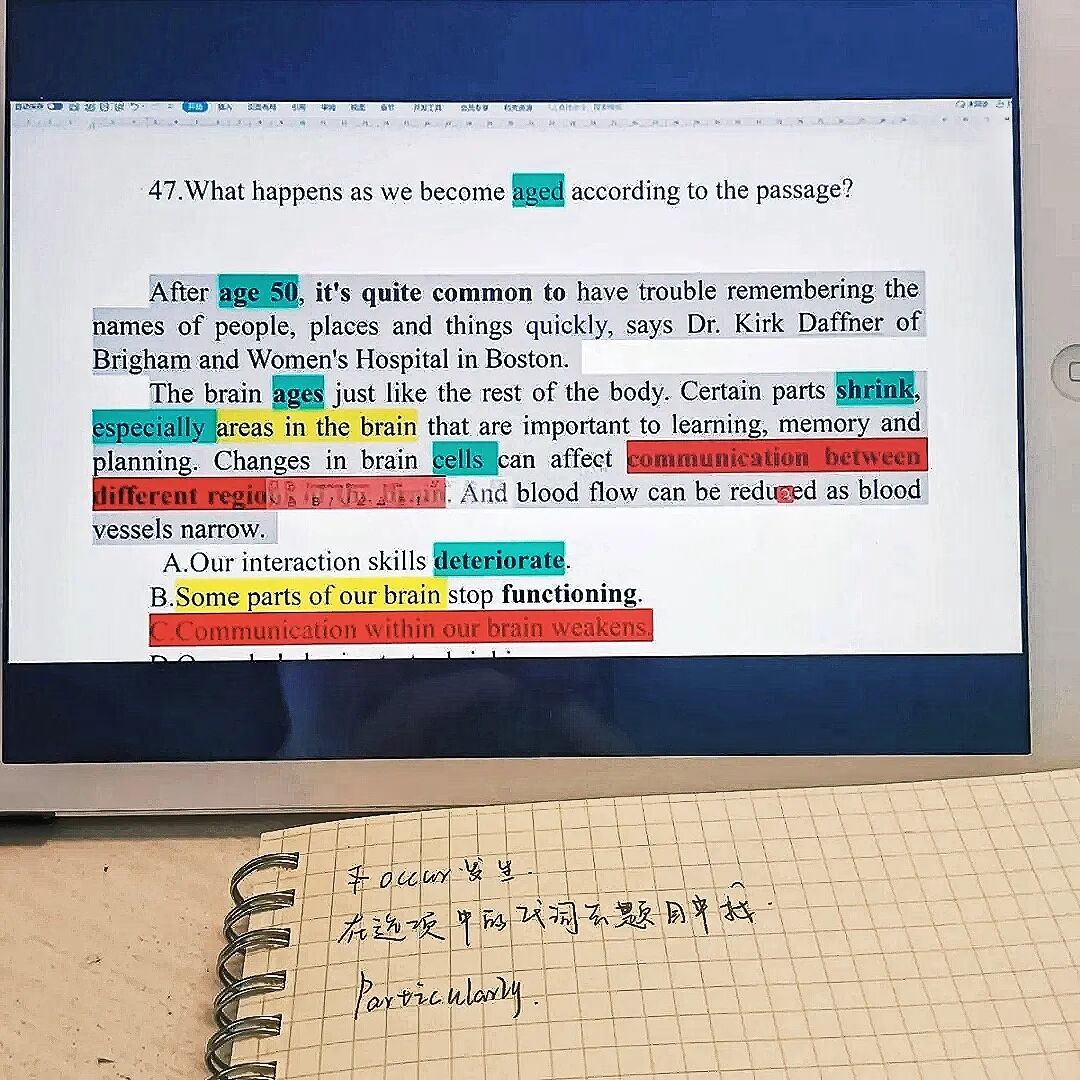 开始 插入 页面布局 引用 审阅 视图 章节 开发工具 会员专享
47.What happens as we become aged according to the passage?
After age 50, it's quite common to have trouble remembering the
names of people, places and things quickly, says Dr. Kirk Daffner of
Brigham and Women's Hospital in Boston.
The brain ages just like the rest of the body. Certain parts shrink,
especially areas in the brain that are important to learning, memory and
planning. Changes in brain cells can affect communication between
different regions in the brain. And blood flow can be reduced as blood
vessels narrow.
A.Our interaction skills deteriorate.
B.Some parts of our brain stop functioning.
C.Communication within our brain weakens.
occur 发生.
在选项中的代词去题目中找.
Particularly.